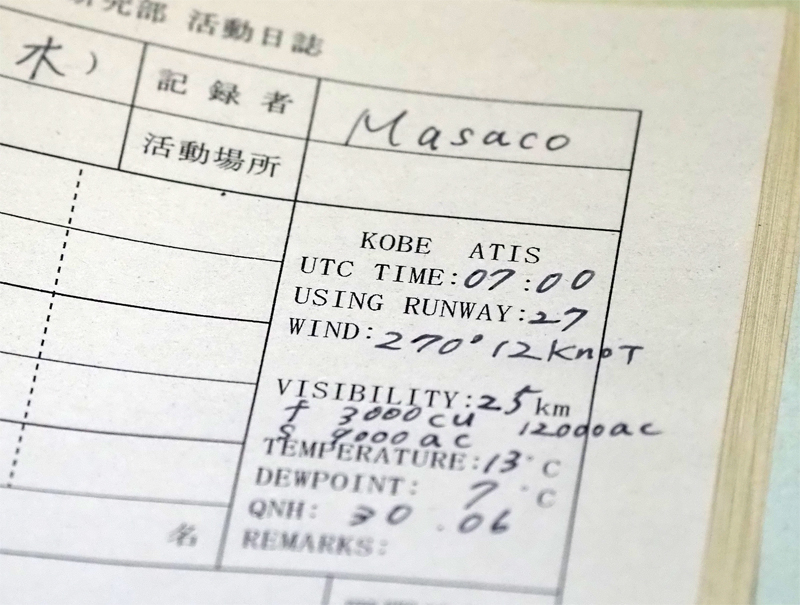 究部 活動日誌
水)
記録者 Masaco
活動場所
KOBE ATIS
UTC TIME:07:00
USING RUNWAY:27
WIND:270° 12 KnoT
VISIBILITY:25 km
f 3000 cu 12000 ac
S 9000 ac
TEMPERATURE:13°C
DEWPOINT: 7 °C
QNH: 30.06
REMARKS:
名